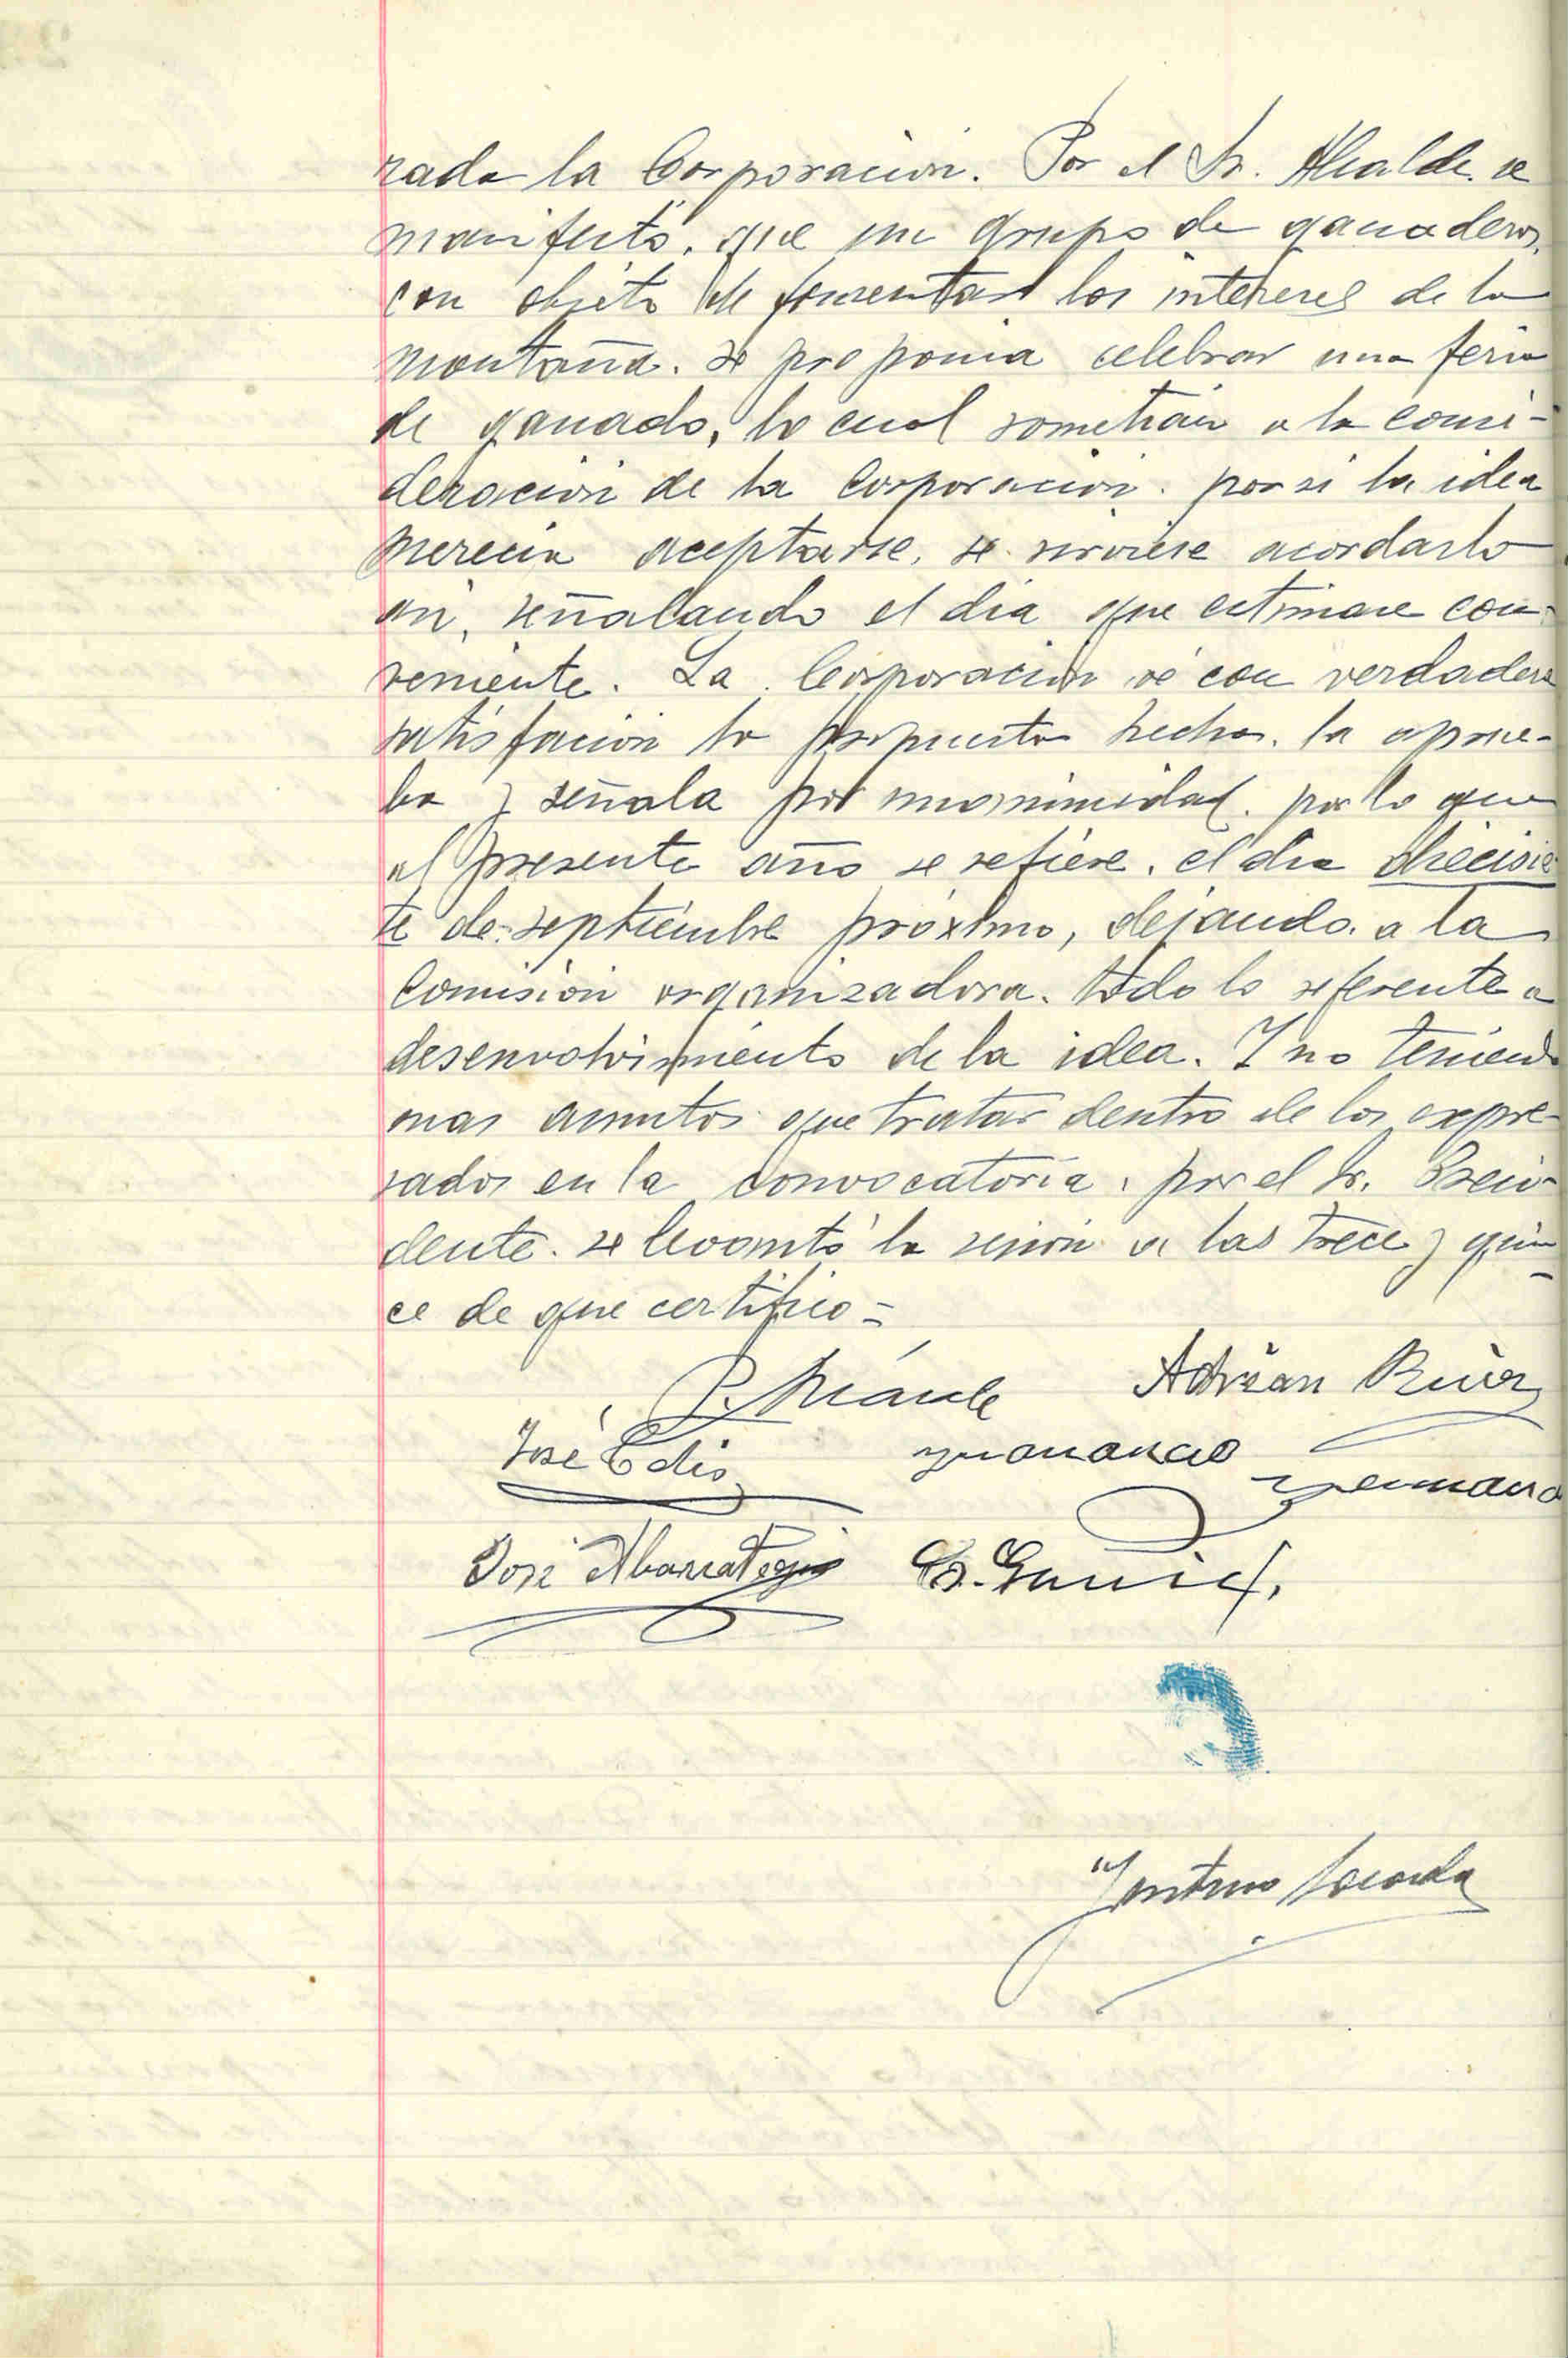 rada la Corporación. Por el Sr. Alcalde. se
manifestó, que un grupo de ganaderos,
con objeto de fomentar los intereses de la
montaña. se proponia celebrar una feria
de ganado, lo cual sometian a la consi-
deración de la Corporación. por si la idea
merecia aceptarse, se sirviese acordarlo
asi, señalando el dia que estimare con-
veniente. La Corporación vé con verdadera
satisfación la propuesta hecha. la aprue-
ba y señala por unanimidad. por lo que
al presente año se refiere. el dia diecisie-
te de septiembre próximo, dejando. a la
Comisión organizadora. todo lo referente a
desenvolvimiento de la idea. Y no teniendo
mas asuntos que tratar dentro de los expre-
sados en la convocatoria, por el Sr. Presi-
dente. se levantó la sesión a las trece y quin-
ce de que certifico =
P. Adrian
José Celis
José